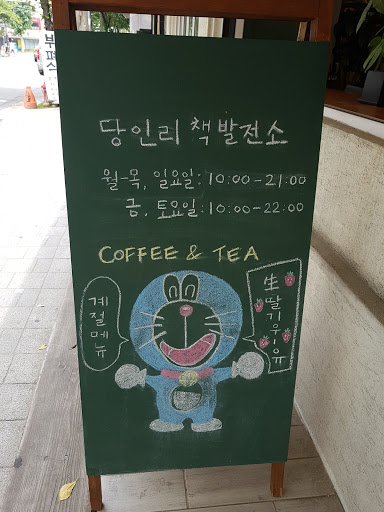 부편식
당인리 책발전소
월-목, 일요일: 10:00-21:00
금, 토요일: 10:00-22:00
COFFEE & TEA
계절메뉴
生딸기우유